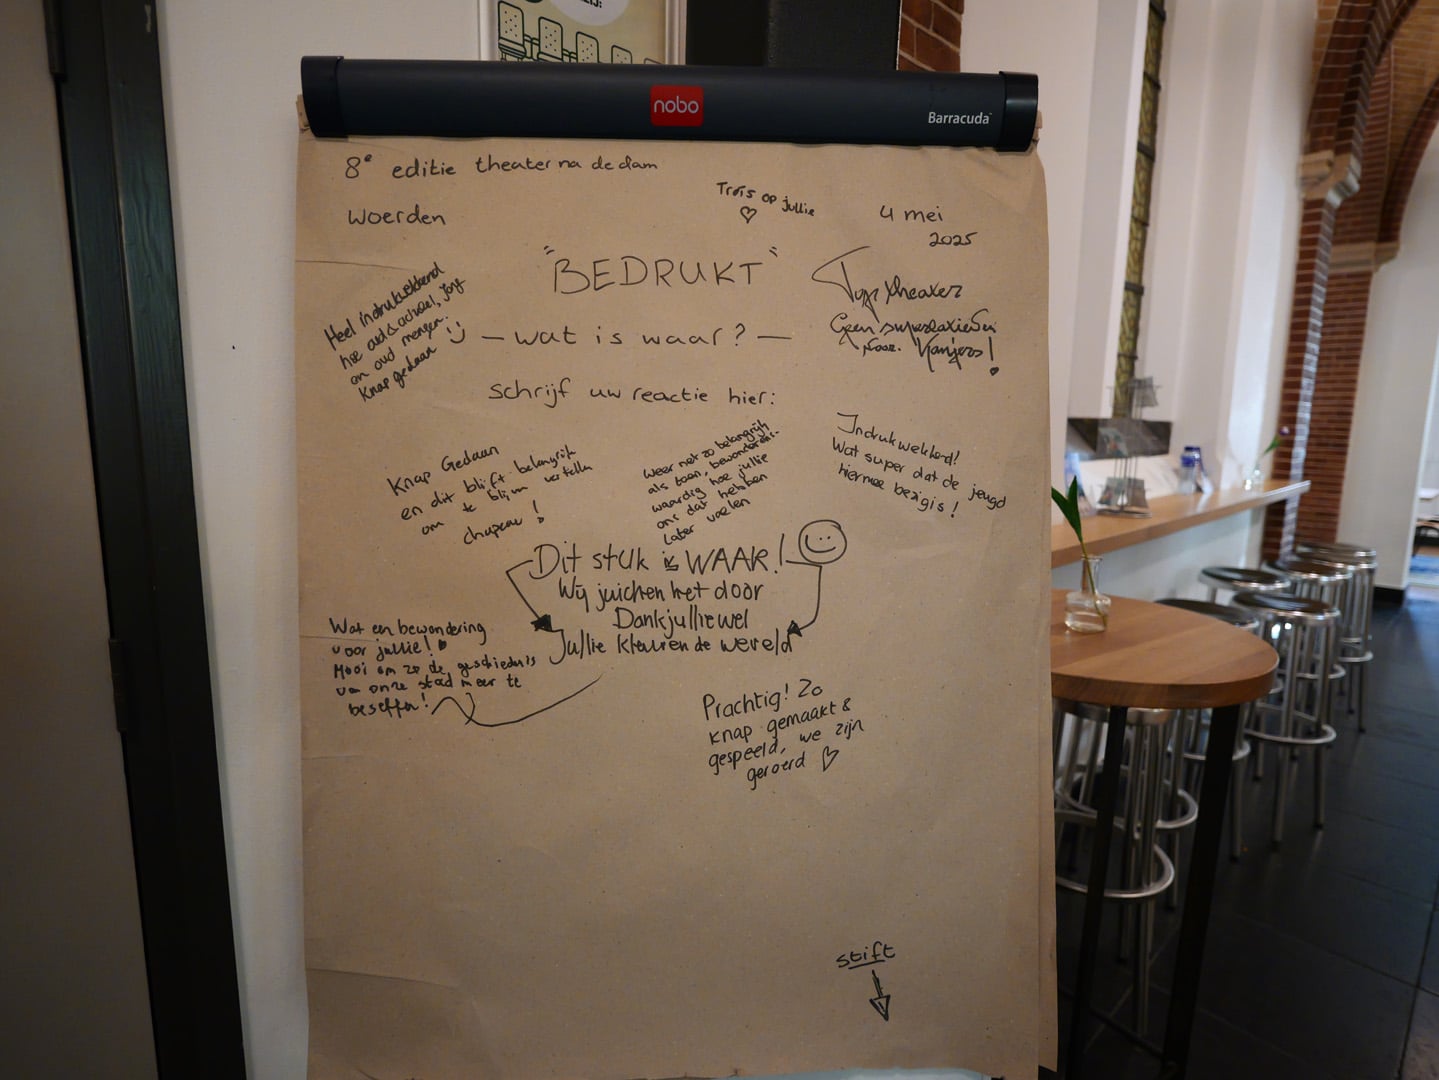 nobo
Barracuda
8e editie theater na de dam
Woerden
Trots op jullie
4 mei
2025
"BEDRUKT"
- wat is waar? -
schrijf uw reactie hier:
Heel indrukwekkend
hoe oud & actueel, jong
en oud mengen.
Knap gedaan
Top theater
Geen superlatieven
voor. Kanjers!
Knap Gedaan
en dit blijft belangrijk
om te blijven vertellen
chapeau!
Weer net zo belangrijk
als toen, bewonderens-
waardig hoe jullie
ons dat hebben
laten voelen
Indrukwekkend!
Wat super dat de jeugd
hiermee bezig is!
Dit stuk is WAAR!
Wij juichen het door
Dankjulliewel
Jullie kleuren de wereld
Wat een bewondering
voor jullie!
Mooi om zo de geschiedenis
van onze stad meer te
beseffen!
Prachtig! Zo
knap gemaakt &
gespeeld, we zijn
geroerd
stift